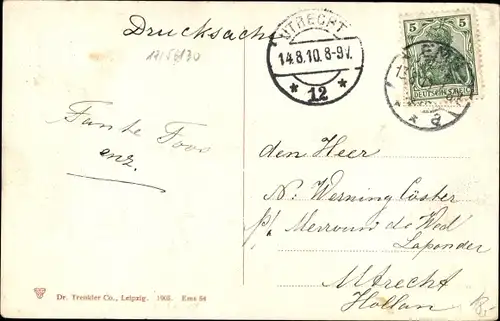 Drucksache
1756/30
UTRECHT
14.8.10. 8-9V.
* 12 *
5 5
DEUTSCHES REICH
EMS
Tante Toos
enz.
den Heer
N. Werning Cöster
p/ Mevrouw de Wed
Laponder
Utrecht
Hollan
Dr. Trenkler Co., Leipzig. 1905. Ems 64